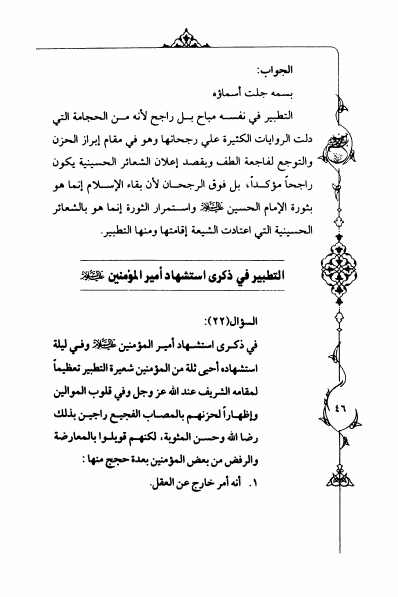 الجواب:
بسمه جلت أسماؤه
التطبير في نفسه مباح بل راجح لأنه من الحجامة التي
دلت الروايات الكثيرة علي رجحانها وهو في مقام إبراز الحزن
والتوجع لفاجعة الطف وبقصد إعلان الشعائر الحسينية يكون
راجحاً مؤكداً، بل فوق الرجحان لأن بقاء الإسلام إنما هو
بثورة الإمام الحسين واستمرار الثورة إنما هو بالشعائر
الحسينية التي اعتادت الشيعة إقامتها ومنها التطبير.
التطبير في ذكرى استشهاد أمير المؤمنين
السؤال(٢٢):
في ذكرى استشهاد أمير المؤمنين وفي ليلة
استشهاده أحيى ثلة من المؤمنين شعيرة التطبير تعظيماً
لمقامه الشريف عند الله عز وجل وفي قلوب الموالين
وإظهاراً لحزنهم بالمصاب الفجيع راجين بذلك
رضا الله وحسن المثوبة، لكنهم قوبلوا بالمعارضة
والرفض من بعض المؤمنين بعدة حجج منها:
١. أنه أمر خارج عن العقل.
٤٦